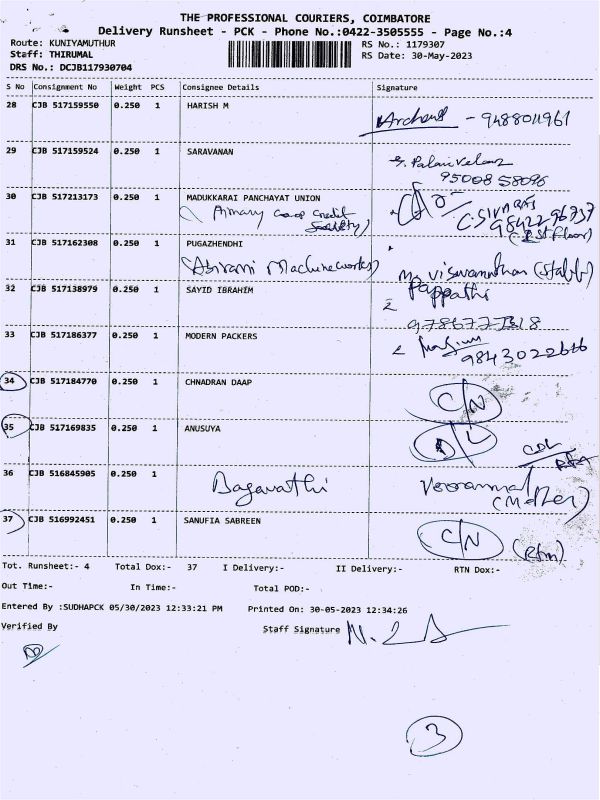 THE PROFESSIONAL COURIERS, COIMBATORE
Delivery Runsheet - PCK - Phone No.:0422-3505555 - Page No.:4
Route: KUNIYAMUTHUR RS No.: 1179307
Staff: THIRUMAL RS Date: 30-May-2023
DRS No.: DCJB117930704
S No Consignment No Weight PCS Consignee Details Signature
28 CJB 517159550 0.250 1 HARISH M
- 9488011961
29 CJB 517159524 0.250 1 SARAVANAN
95008 58096
30 CJB 517213173 0.250 1 MADUKKARAI PANCHAYAT UNION
Primary coop credit Society) C. SIVARAJ
98422 96737
(1st floor)
31 CJB 517162308 0.250 1 PUGAZHENDHI
(Abirami Machineworks) Viswanathan (Staff)
32 CJB 517138979 0.250 1 SAYID IBRAHIM Pappathi
33 CJB 517186377 0.250 1 MODERN PACKERS
9843022616
34 CJB 517184770 0.250 1 CHNADRAN DAAP C/N
35 CJB 517169835 0.250 1 ANUSUYA D/L
CDL
36 CJB 516845905 0.250 1 Bagavathi Veerammal
(Mother)
37 CJB 516992451 0.250 1 SANUFIA SABREEN C/N (Rtn)
Tot. Runsheet:- 4 Total Dox:- 37 I Delivery:- II Delivery:- RTN Dox:-
Out Time:- In Time:- Total POD:-
Entered By :SUDHAPCK 05/30/2023 12:33:21 PM Printed On: 30-05-2023 12:34:26
Verified By Staff Signature
3